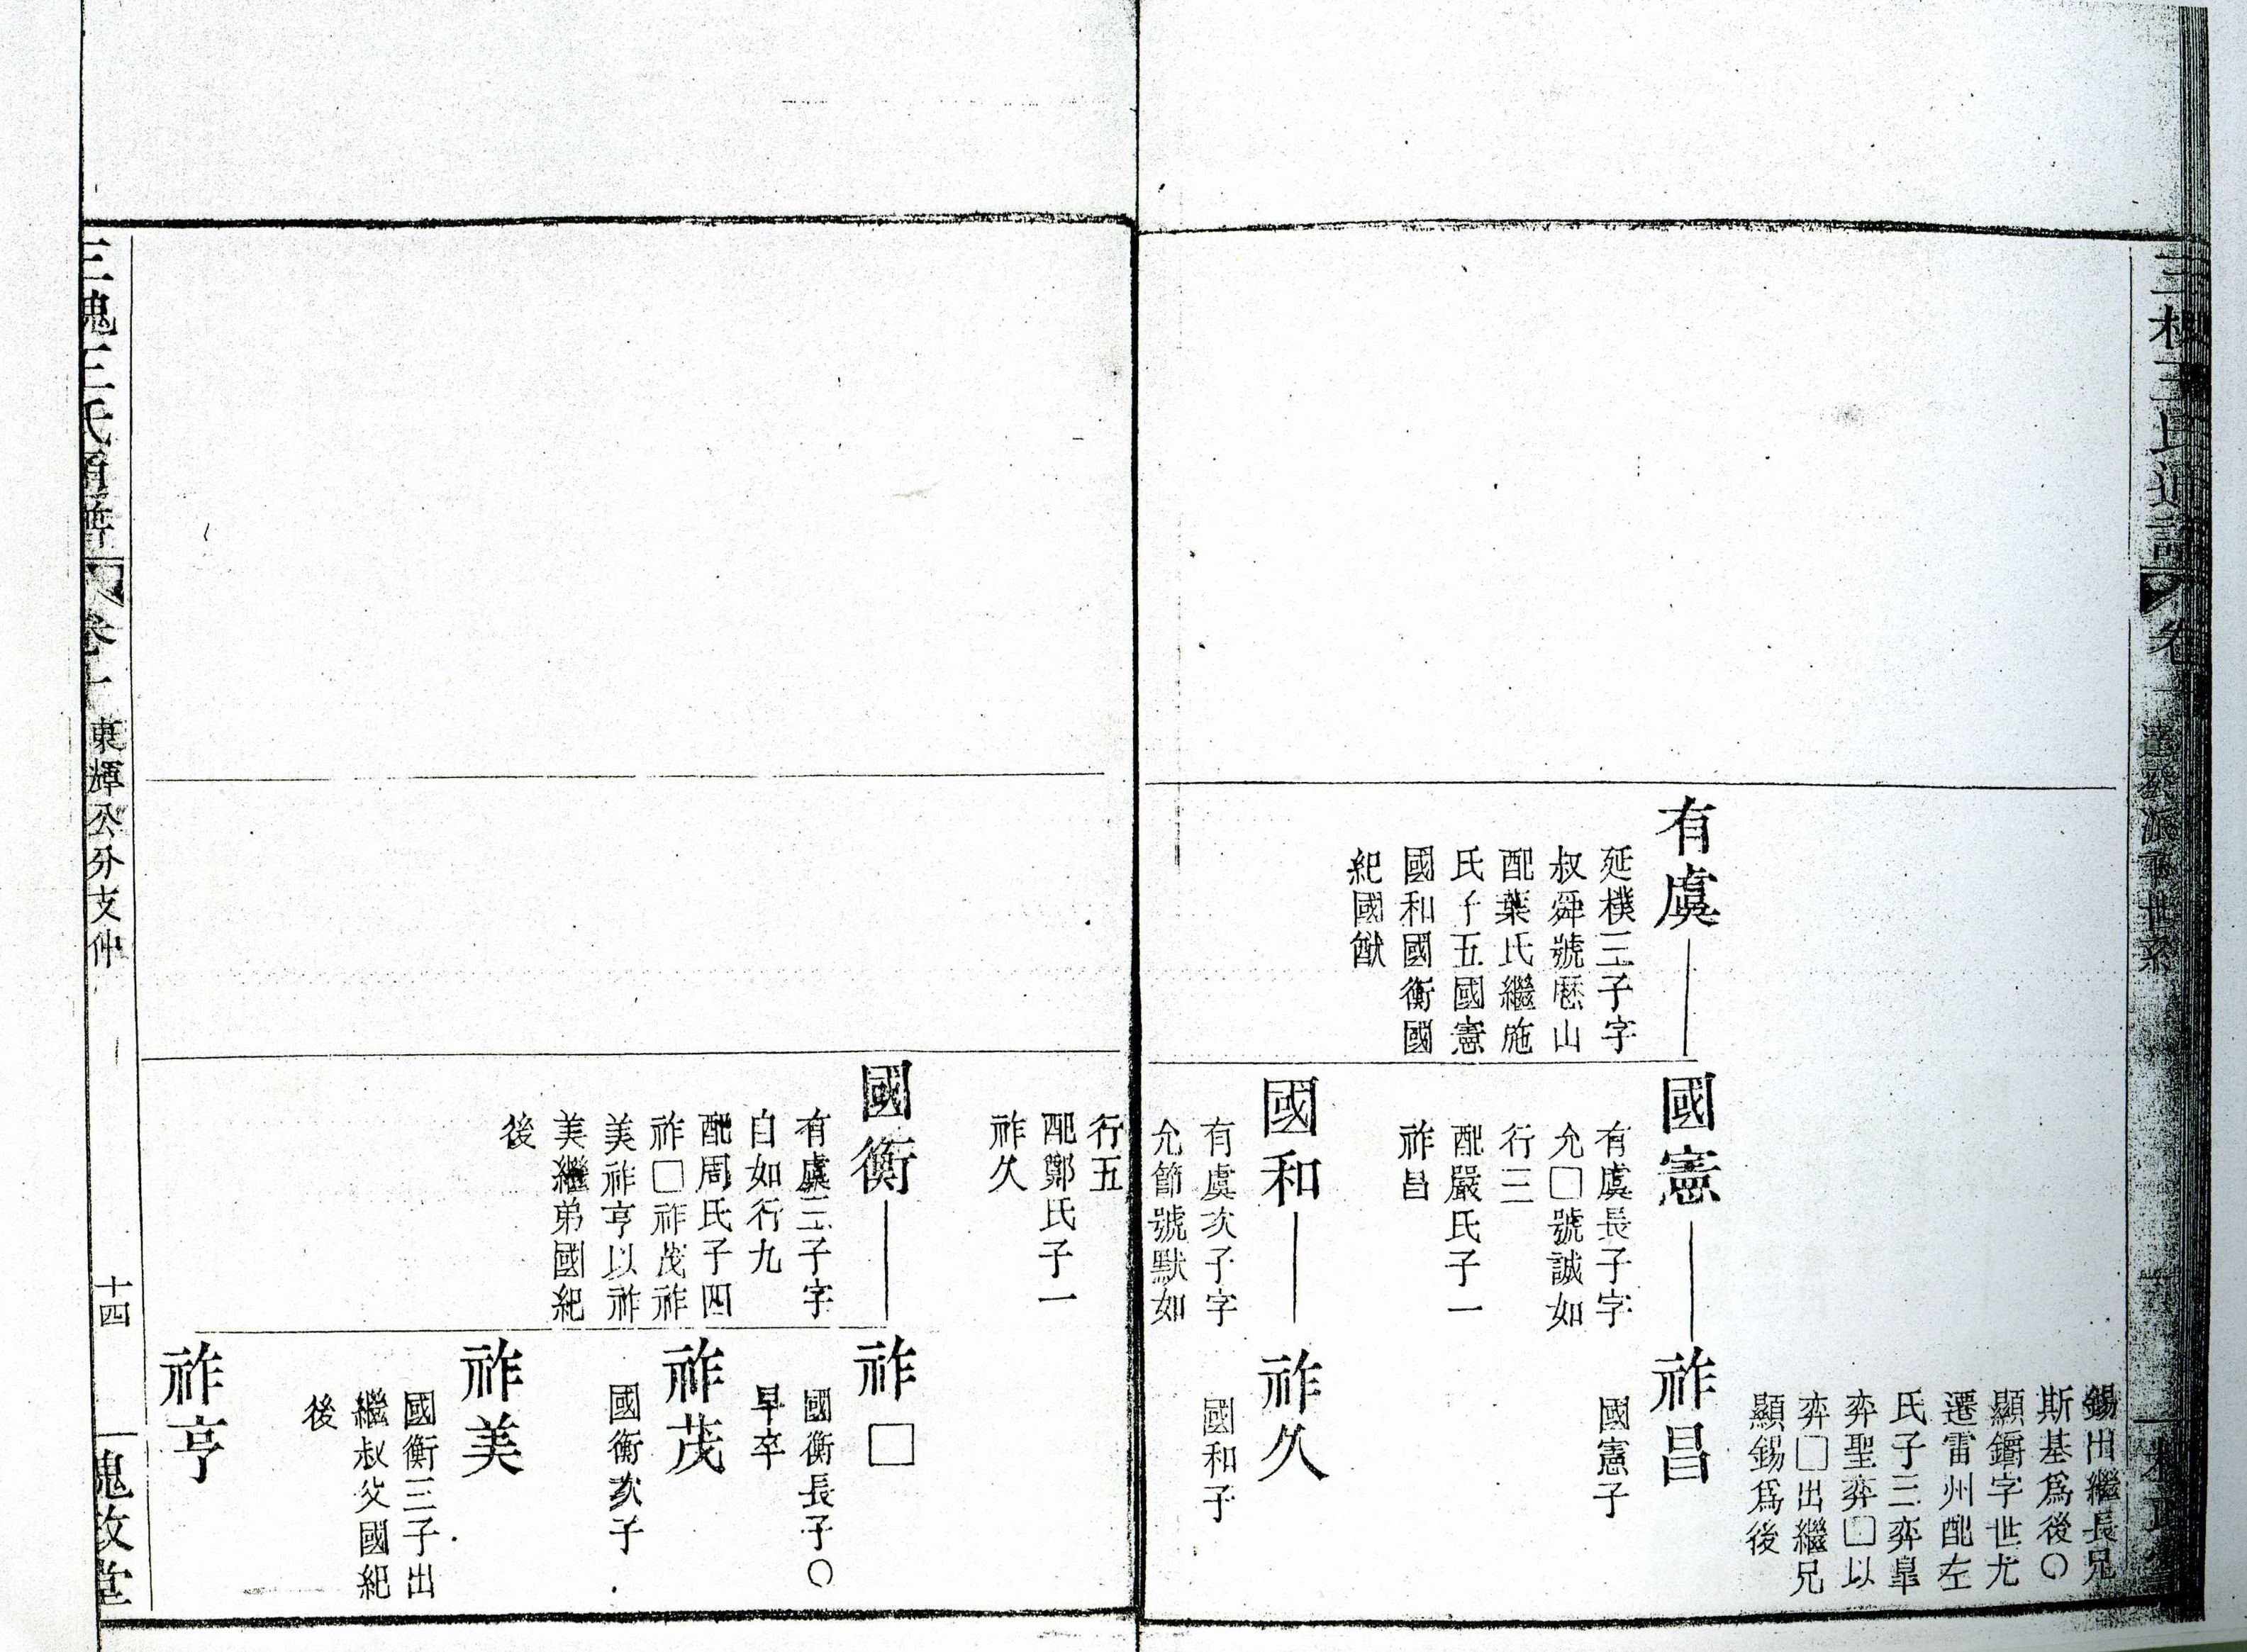 三槐王氏通譜
卷一
達公派下世系
錫出繼長兄
斯基爲後〇
顯鑰字世尤
遷雷州配左
氏子三弈臯
弈聖弈□以
弈□出繼兄
顯錫爲後
有虞
延樸三子字
叔舜號厯山
配葉氏繼施
氏子五國憲
國和國衡國
紀國猷
國憲
有虞長子字
允□號誠如
行三
配嚴氏子一
祚昌
祚昌
國憲子
國和
有虞次子字
允節號默如
行五
配鄭氏子一
祚久
祚久
國和子
國衡
有虞三子字
自如行九
配周氏子四
祚□祚茂祚
美祚亨以祚
美繼弟國紀
後
祚□
國衡長子〇
早卒
祚茂
國衡次子
祚美
國衡三子出
繼叔父國紀
後
祚亨
三槐王氏通譜
卷十一
東輝公分支仲
十四
槐政堂